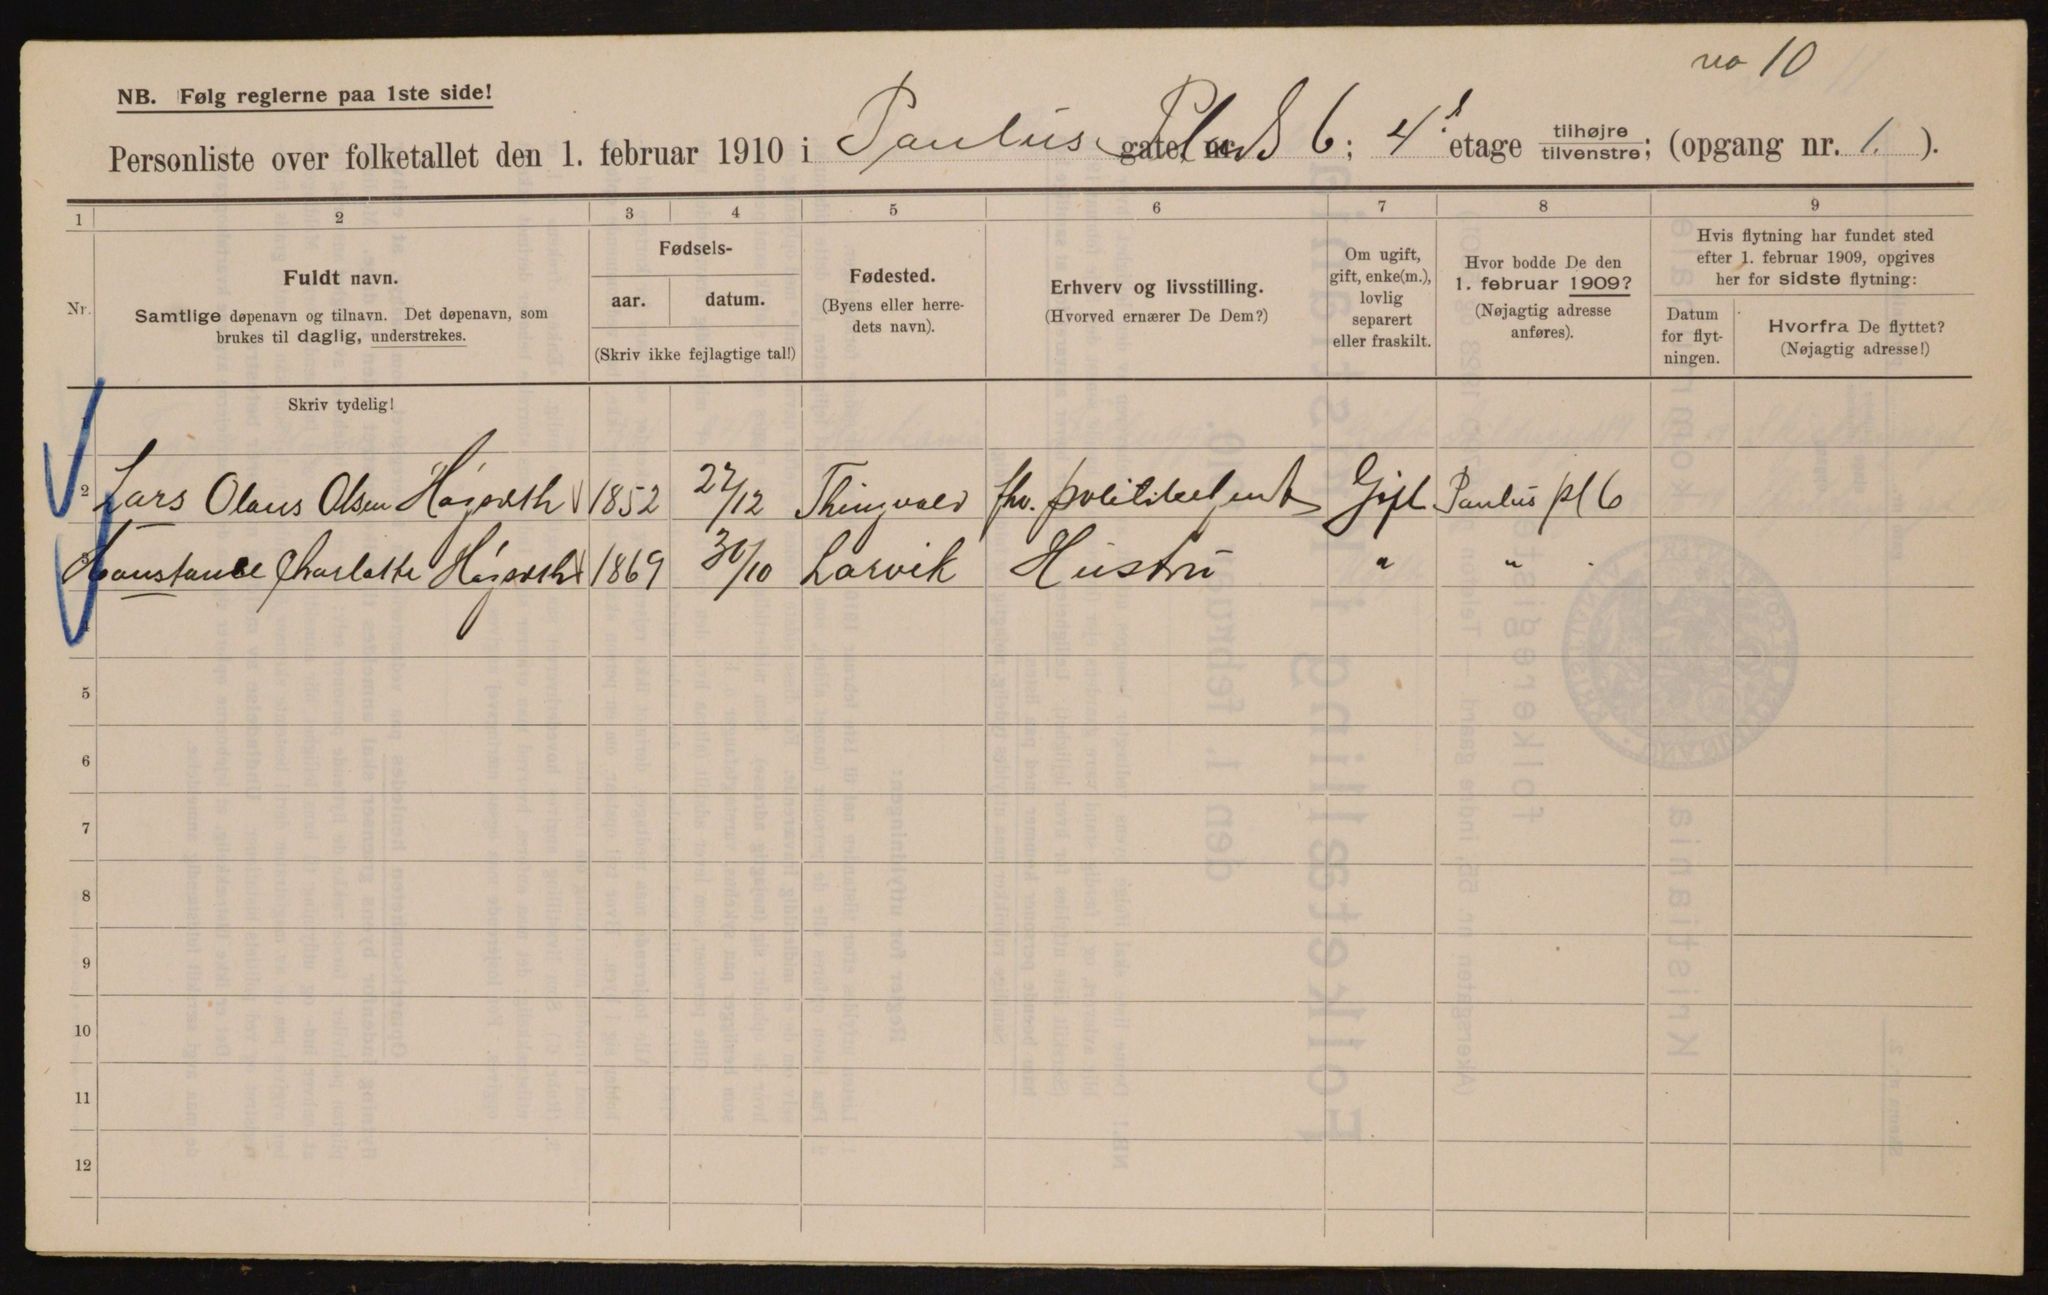 no 10
NB. Følg reglerne paa 1ste side!
Personliste over folketallet den 1. februar 1910 i Paulus Plads 6; 4 etage tilhøjre/tilvenstre; (opgang nr. 1. ).
1 2 3 4 5 6 7 8 9
Nr.
Fuldt navn.
Samtlige døpenavn og tilnavn. Det døpenavn, som
brukes til daglig, understrekes.
Fødsels-
aar. datum.
(Skriv ikke fejlagtige tal!)
Fødested.
(Byens eller herre-
dets navn).
Erhverv og livsstilling.
(Hvorved ernærer De Dem?)
Om ugift,
gift, enke(m.),
lovlig
separert
eller fraskilt.
Hvor bodde De den
1. februar 1909?
(Nøjagtig adresse
anføres).
Hvis flytning har fundet sted
efter 1. februar 1909, opgives
her for sidste flytning:
Datum
for flyt-
ningen.
Hvorfra De flyttet?
(Nøjagtig adresse!)
Skriv tydelig!
1
2 Lars Olaus Olsen 1852 27/12 Thingvold fhv. politibetjent Gift Paulus pl 6
3 Konstance Charlotte 1869 30/10 Larvik Hustru " "
4
5
6
7
8
9
10
11
12